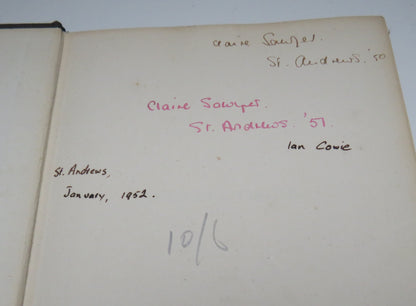 Claire Sawyer.
St. Andrews. '50
Claire Sawyer.
St. Andrews. '51.
Ian Cowie
St. Andrews,
January, 1952.
10/6